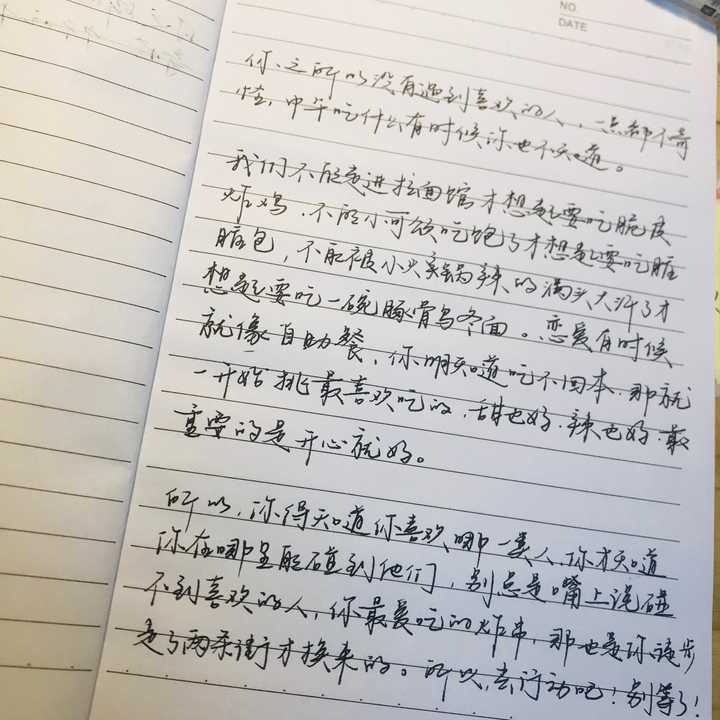 NO.
DATE
你之所以没有遇到喜欢的人,一点都不奇
怪,中午吃什么有时候你也不知道。
我们不能走进拉面馆才想起要吃脆皮
炸鸡,不能小可颂吃饱了才想起要吃脏
脏包,不能被小火锅辣的满头大汗了才
想起要吃一碗豚骨乌冬面。恋爱有时候
就像自助餐,你明知道吃不回本,那就
一开始挑最喜欢吃的,甜也好,辣也好,最
重要的是开心就好。
所以,你得知道你喜欢哪一类人,你才知道
你在哪里能碰到他们,别总是嘴上说碰
不到喜欢的人,你最爱吃的炸串,那也是你徒步
走了两条街才换来的。所以,去行动吧!别等了!